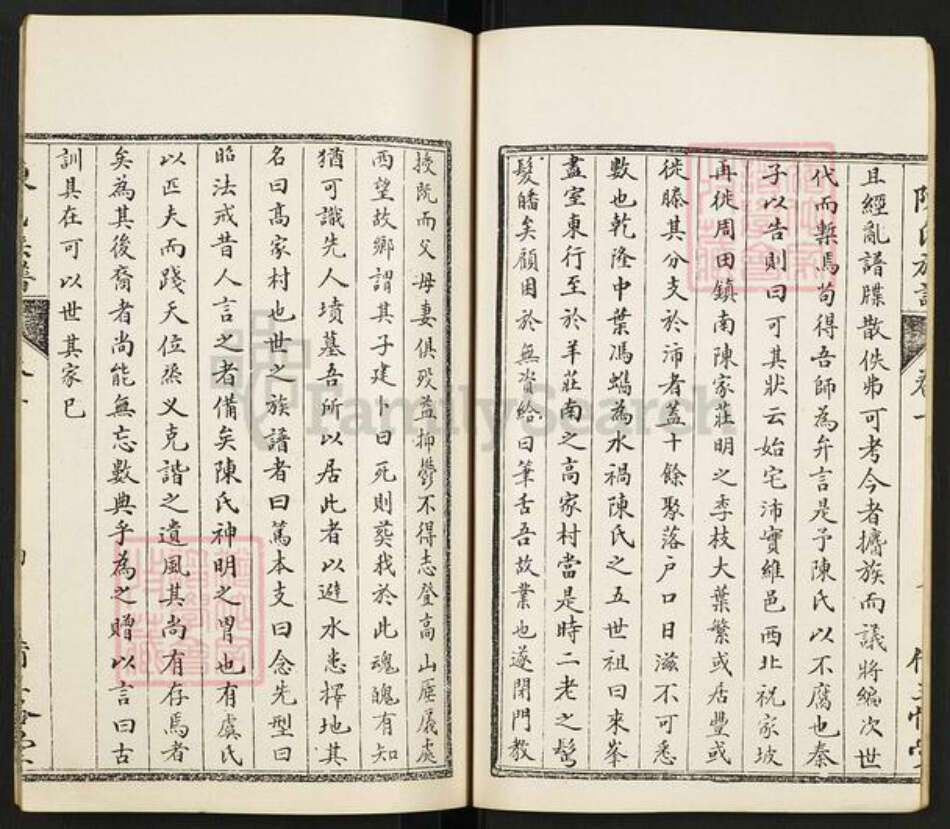 且經亂譜牒散佚弗可考今者擕族而議將編次世
代而槧焉苟得吾師為弁言是予陳氏以不腐也秦
子以告則曰可其狀云始宅沛實維邑西北祝家坡
再徙周田鎮南陳家莊明之季枝大葉繁或居豐或
徙滕其分支於沛者蓋十餘聚落户口日滋不可悉
數也乾隆中葉馮蠵為水禍陳氏之五世祖曰來峯
盡室東行至於羊莊南之高家村當是時二老之髩
髮皤矣顧困於無資給曰筆舌吾故業也遂閉門教
授既而父母妻俱歿益抑鬱不得志登高山屢屢處
西望故鄉謂其子建卜曰死則葬我於此魂魄有知
猶可識先人墳墓吾所以居此者以避水患擇地其
名曰高家村也世之族譜者曰篤本支曰念先型曰
昭法戒昔人言之者備矣陳氏神明之胄也有虞氏
以匹夫而踐天位烝乂克諧之遺風其尚有存焉者
矣為其後裔者尚能無忘數典乎為之贈以言曰古
訓其在可以世其家已
FamilySearch